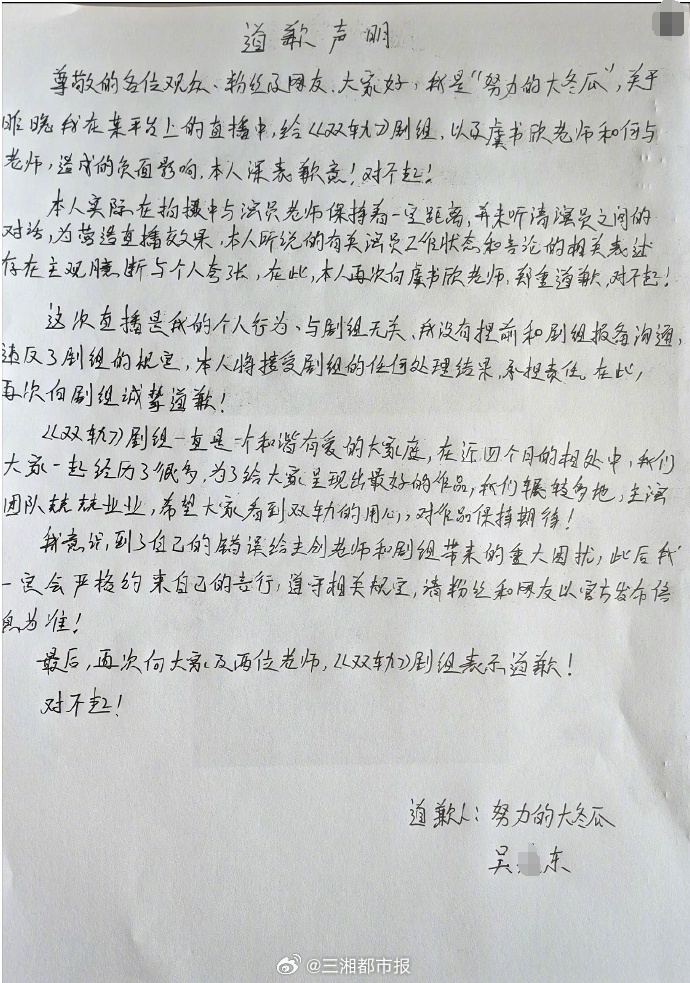 道歉声明
尊敬的各位观众、粉丝及网友、大家好,我是“努力的大冬瓜”,关于
昨晚我在某平台上的直播中,给《双轨》剧组,以及虞书欣老师和何与
老师,造成的负面影响,本人深表歉意!对不起!
本人实际在拍摄中与演员老师保持着一定距离,并未听清演员之间的
对话,为营造直播效果,本人所说的有关演员工作状态和言论的相关表述
存在主观臆断与个人夸张,在此,本人再次向虞书欣老师,郑重道歉,对不起!
这次直播是我的个人行为、与剧组无关、我没有提前和剧组报备沟通,
违反了剧组的规定,本人将接受剧组的任何处理结果,承担责任,在此,
再次向剧组诚挚道歉!
《双轨》剧组一直是一个和谐有爱的大家庭,在近四个月的相处中,我们
大家一起经历了很多,为了给大家呈现出最好的作品,我们辗转多地,主演
团队兢兢业业,希望大家看到双轨的用心,对作品保持期待!
我意识到了自己的错误给主创老师和剧组带来的重大困扰,此后我
一定会严格约束自己的言行,遵守相关规定,请粉丝和网友以官方发布信
息为准!
最后,再次向大家及两位老师,《双轨》剧组表示道歉!
对不起!
道歉人:努力的大冬瓜
吴 东
@三湘都市报